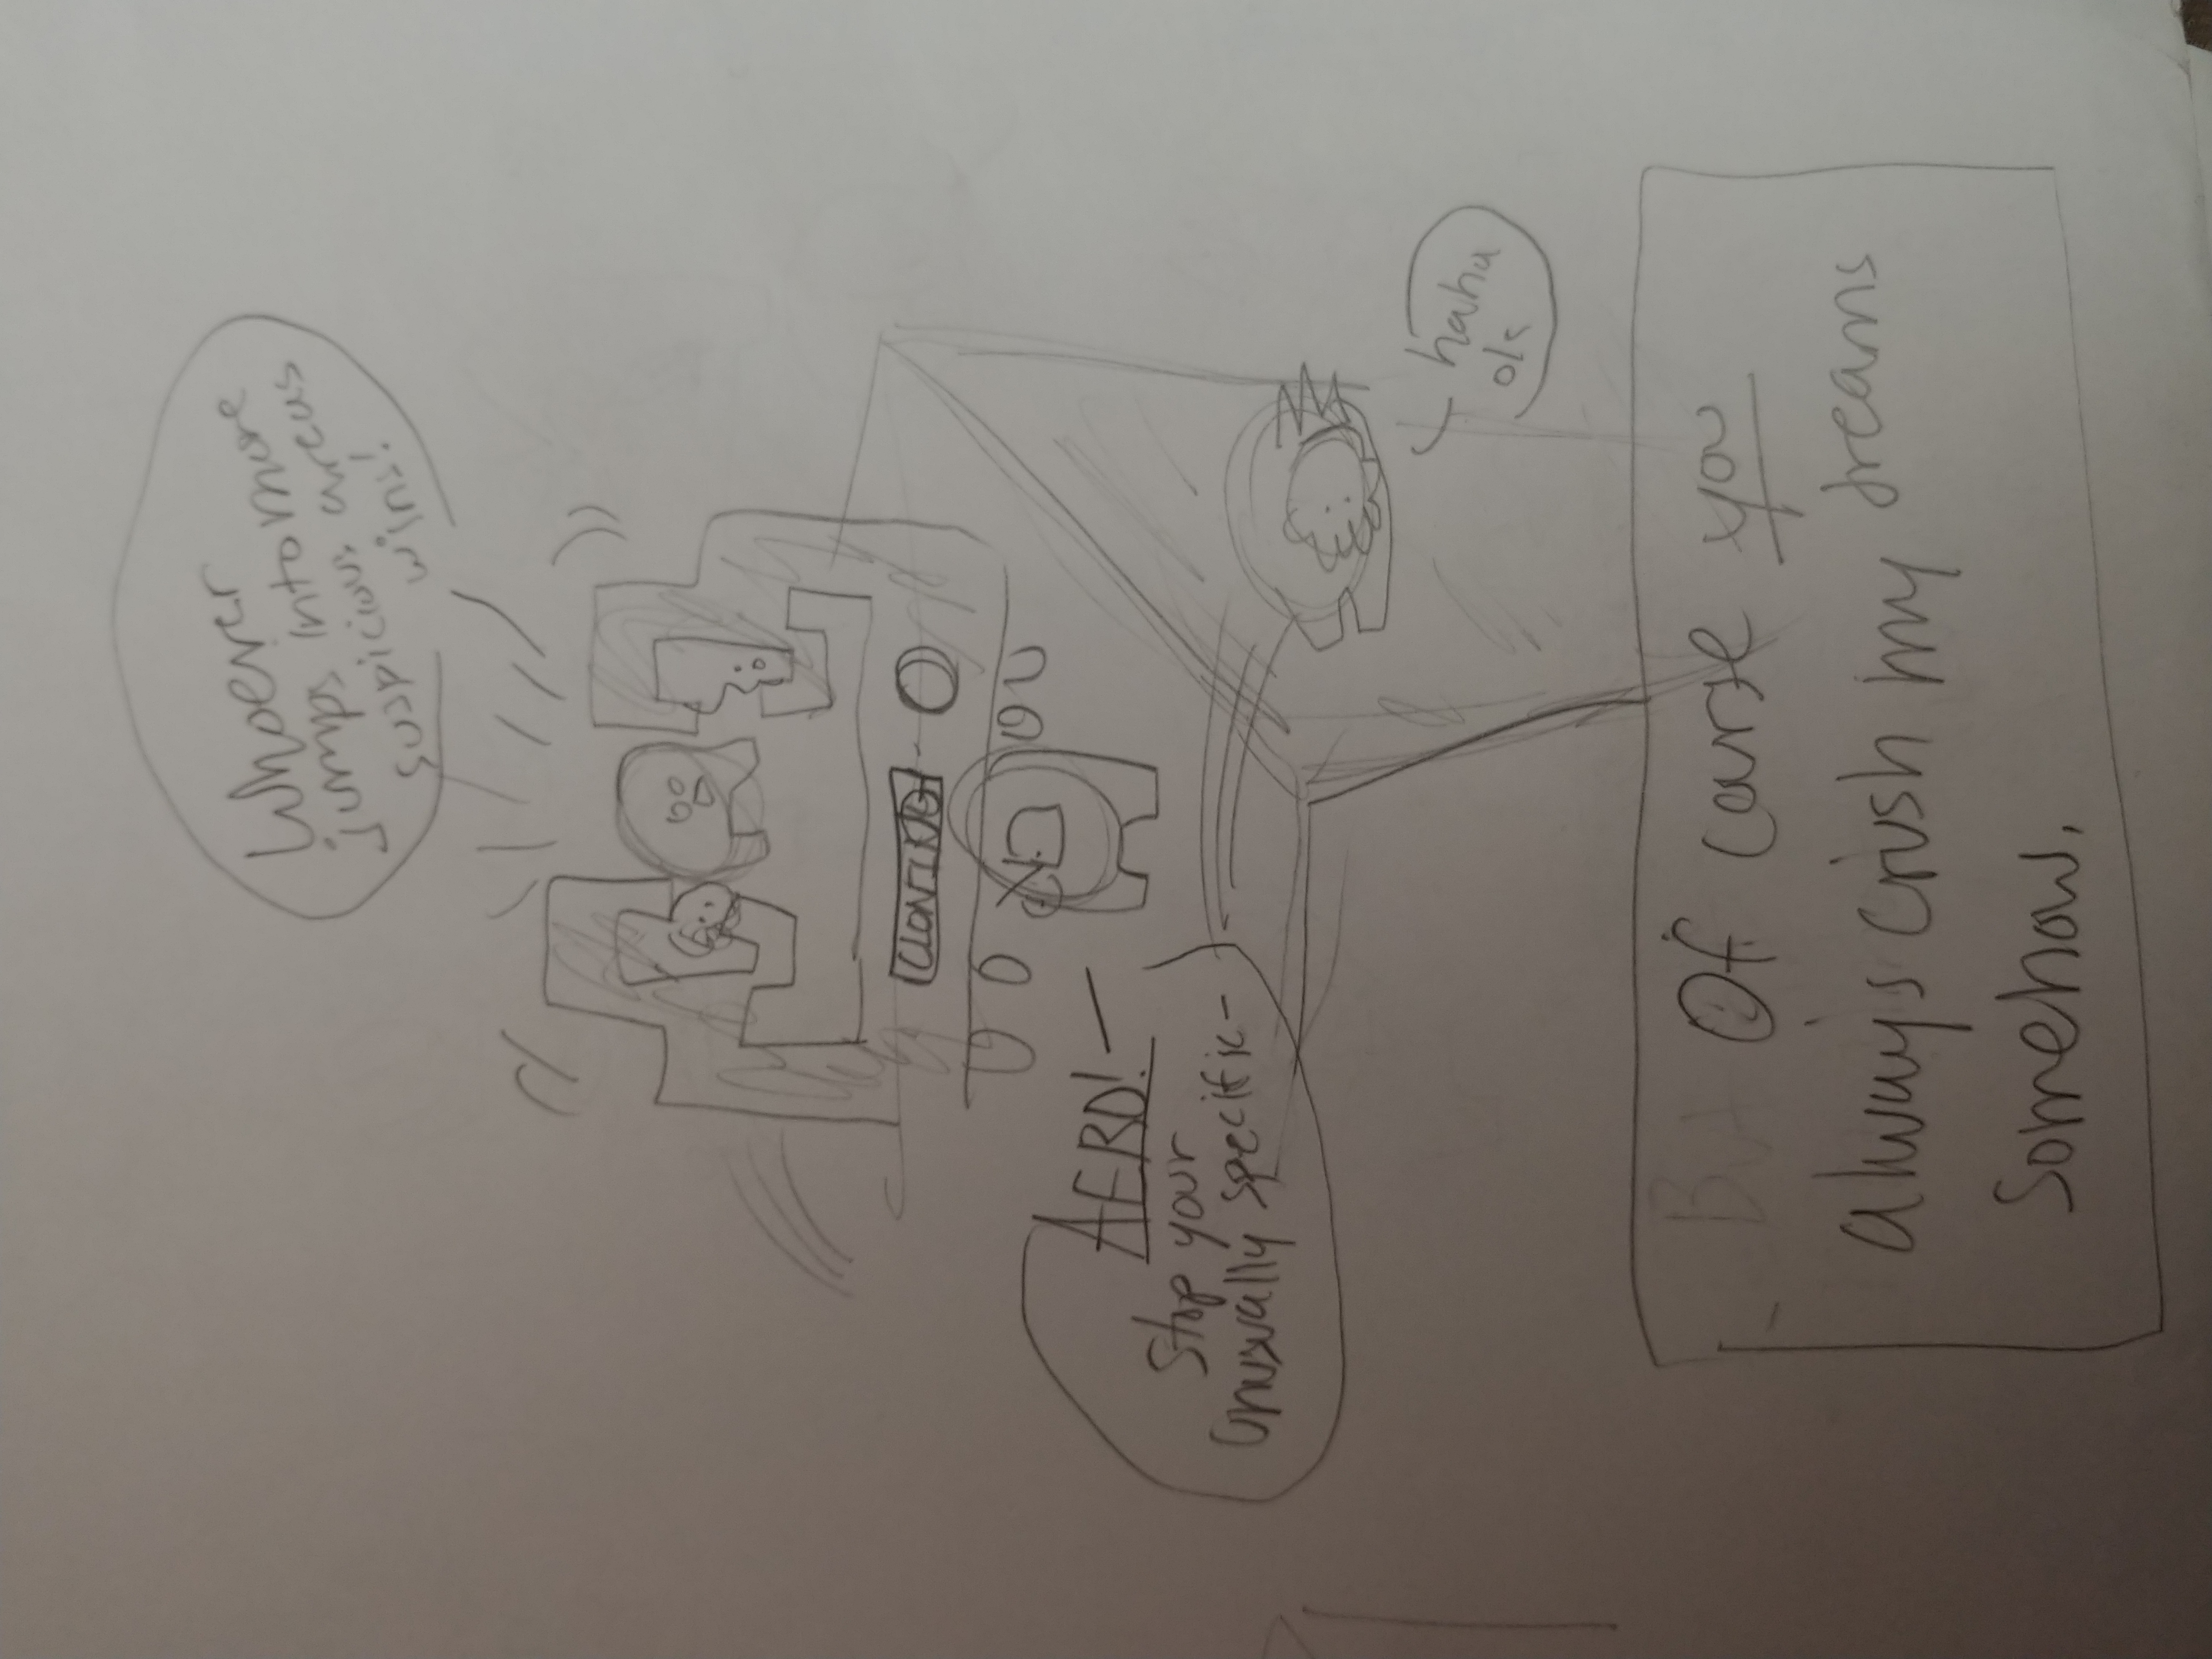 Whoever
jumps into more
suspicious areas
wins!
CLONING
AERO!
Stop your
Unusually specific-
haha
ok
But
Of course you
always crush my dreams
Somehow.